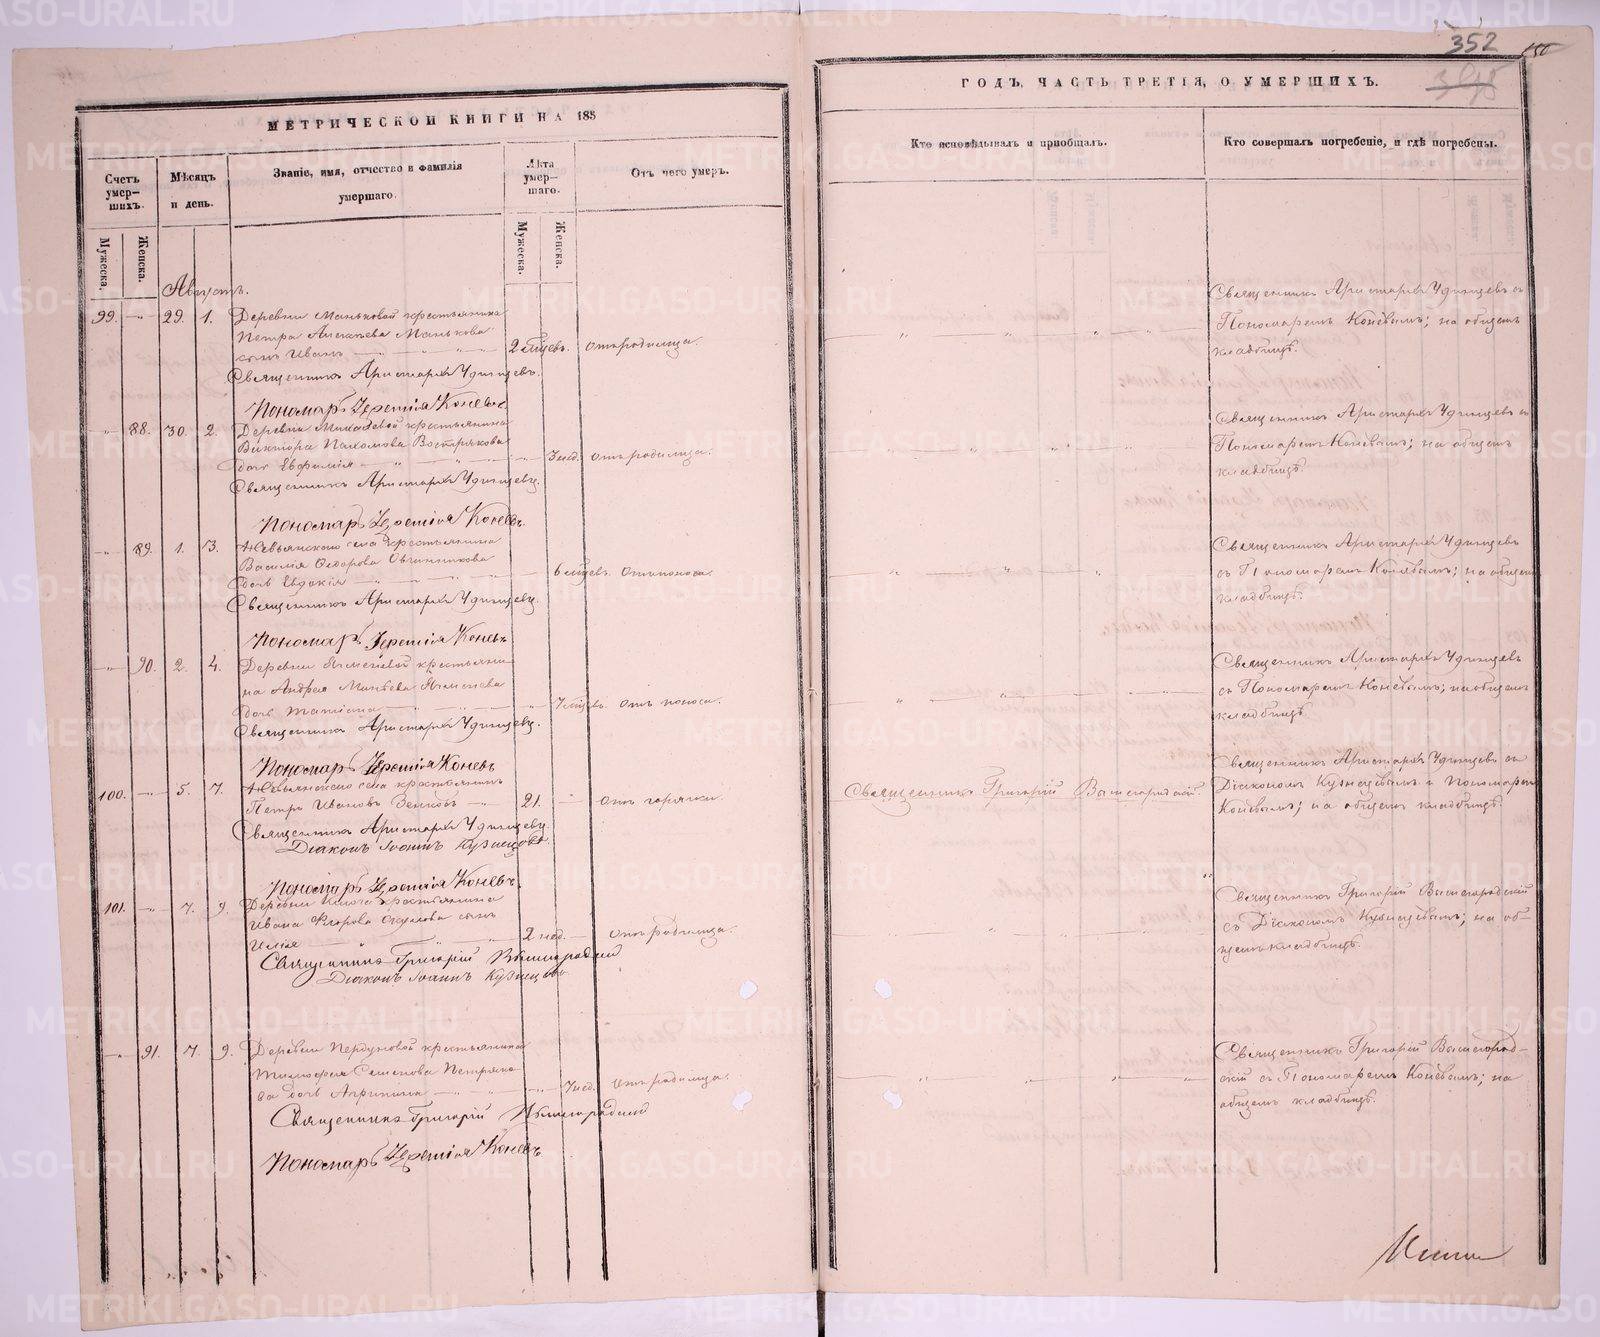 352
МЕТРИЧЕСКОЙ КНИГИ НА 185
ГОДЪ, ЧАСТЬ ТРЕТІЯ, О УМЕРШИХЪ.
Счетъ умер-шихъ.
Мѣсяцъ и день.
Званіе, имя, отчество и фамилія умершаго.
Лѣта умер-шаго.
Отъ чего умеръ.
Кто исповѣдывалъ и пріобщалъ.
Кто совершалъ погребеніе, и гдѣ погребены.
Мужеска.
Женска.
Мужеска.
Женска.
Августъ.
99. 29. 1. Деревни Маньковой крестьянина
Петра Алексѣева Манькова
сынъ Иванъ 2 мѣсяцевъ. отъ родимца.
Священникъ Аристархъ Удинцевъ.
Пономарь Іеремія Коневъ.
Священникъ Аристархъ Удинцевъ съ
Пономаремъ Коневымъ; на общемъ
кладбищѣ.
88. 30. 2. Деревни крестьянина
Виктора Пахомова Вострякова
дочь Евфимія 3 нед. отъ родимца.
Священникъ Аристархъ Удинцевъ.
Пономарь Іеремія Коневъ.
Священникъ Аристархъ Удинцевъ съ
Пономаремъ Коневымъ; на общемъ
кладбищѣ.
89. 1. 3. Невьянского села крестьянина
Василія Ѳедорова Овчинникова
дочь Евдокія 6 мѣсяцевъ. отъ поноса.
Священникъ Аристархъ Удинцевъ.
Пономарь Іеремія Коневъ.
Священникъ Аристархъ Удинцевъ
съ Пономаремъ Коневымъ; на общемъ
кладбищѣ.
90. 2. 4. Деревни крестьяни-
на Андрея
дочь Татіана отъ поноса.
Священникъ Аристархъ Удинцевъ.
Пономарь Іеремія Коневъ
Священникъ Аристархъ Удинцевъ
съ Пономаремъ Коневымъ; на общемъ
кладбищѣ.
100. 5. 7. Невьянского села крестьянинъ
Петръ Ивановъ 21. отъ горячки.
Священникъ Аристархъ Удинцевъ.
Діаконъ Іоаннъ Кузнецовъ.
Пономарь Іеремія Коневъ.
Священникъ Григорій Вышегородскій.
Священникъ Аристархъ Удинцевъ съ
Діакономъ Кузнецовымъ и Пономаремъ
Коневымъ; на общемъ кладбищѣ.
101. 7. 9. Деревни Ключа крестьянина
Ивана Окулова сынъ
Илія 2 нед. отъ родимца.
Священникъ Григорій Вышегородскій
Діаконъ Іоаннъ Кузнецовъ
Священникъ Григорій Вышегородскій
съ Діакономъ Кузнецовымъ; на об-
щемъ кладбищѣ.
91. 7. 9. Деревни Пердуновой крестьянина
Тимофея Семенова Петряко-
ва дочь Агрипина 3 нед. отъ родимца.
Священникъ Григорій Вышегородскій
Пономарь Іеремія Коневъ.
Священникъ Григорій Вышегород-
скій съ Пономаремъ Коневымъ; на
общемъ кладбищѣ.